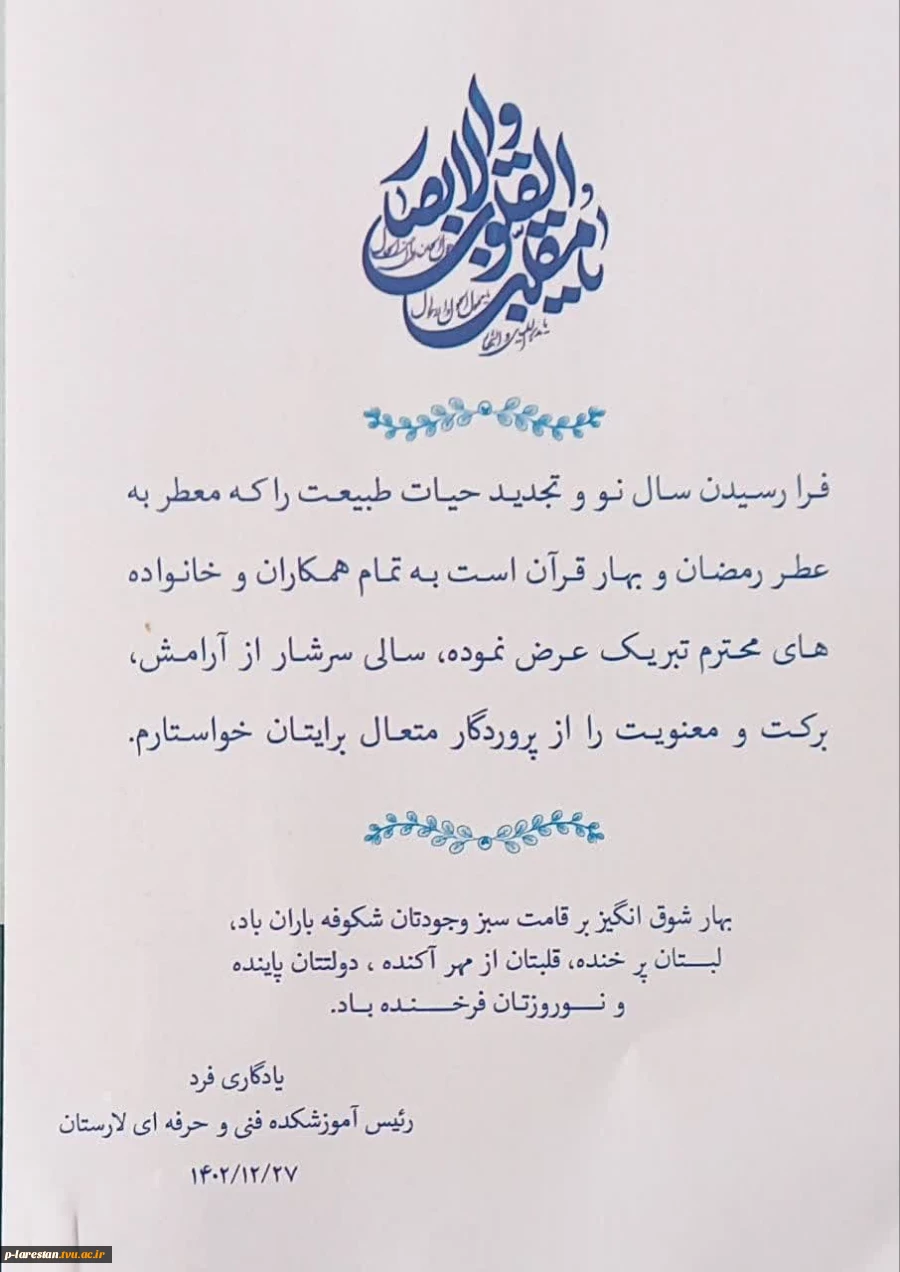 یا مقلب القلوب و الابصار
یا مدبر اللیل و النهار
یا محول الحول و الاحوال
فرا رسیدن سال نو و تجدید حیات طبیعت را که معطر به
عطر رمضان و بهار قرآن است به تمام همکاران و خانواده
های محترم تبریک عرض نموده، سالی سرشار از آرامش،
برکت و معنویت را از پروردگار متعال برایتان خواستارم.
بهار شوق انگیز بر قامت سبز وجودتان شکوفه باران باد،
لبستان پر خنده، قلبتان از مهر آکنده ، دولتتان پاینده
و نوروزتان فرخنده باد.
یادگاری فرد
رئیس آموزشکده فنی و حرفه ای لارستان
۱۴۰۲/۱۲/۲۷
p-larestan.tvu.ac.ir